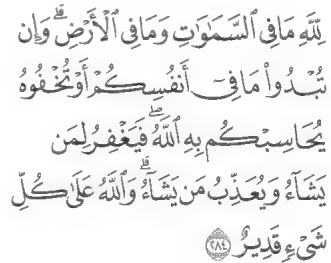 لِّلَّهِ مَا فِي السَّمَٰوَٰتِ وَمَا فِي الْأَرْضِ ۗ وَإِن
تُبْدُوا۟ مَا فِيٓ أَنفُسِكُمْ أَوْ تُخْفُوهُ
يُحَاسِبْكُم بِهِ اللَّهُ ۖ فَيَغْفِرُ لِمَن
يَشَآءُ وَيُعَذِّبُ مَن يَشَآءُ ۗ وَاللَّهُ عَلَىٰ كُلِّ
شَيْءٍ قَدِيرٌ ﴿٢٨٤﴾